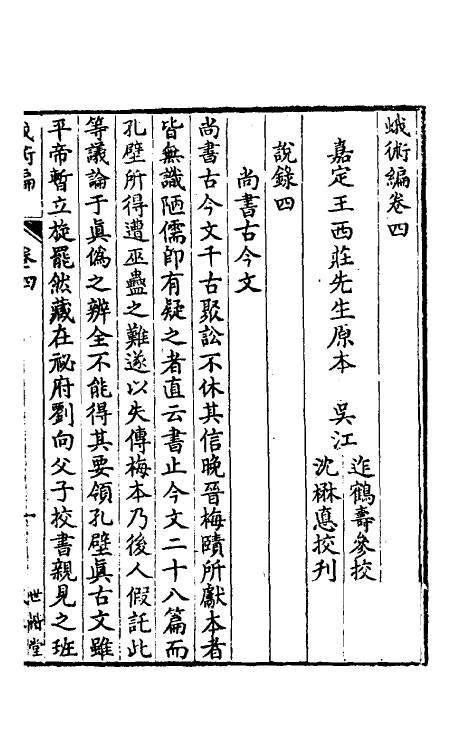 蛾術編卷四
嘉定王西莊先生原本　吳江
迮鶴壽參校
沈楙悳挍刊
說錄四
尚書古今文
尚書古今文千古聚訟不休其信晚晉梅賾所獻本者
皆無識陋儒卽有疑之者直云書止今文二十八篇而
孔壁所得遭巫蠱之難遂以失傳梅本乃後人假託此
等議論于眞僞之辨全不能得其要領孔壁眞古文雖
平帝暫立旋罷然藏在祕府劉向父子挍書親見之班
術編
卷四
一
世楷堂